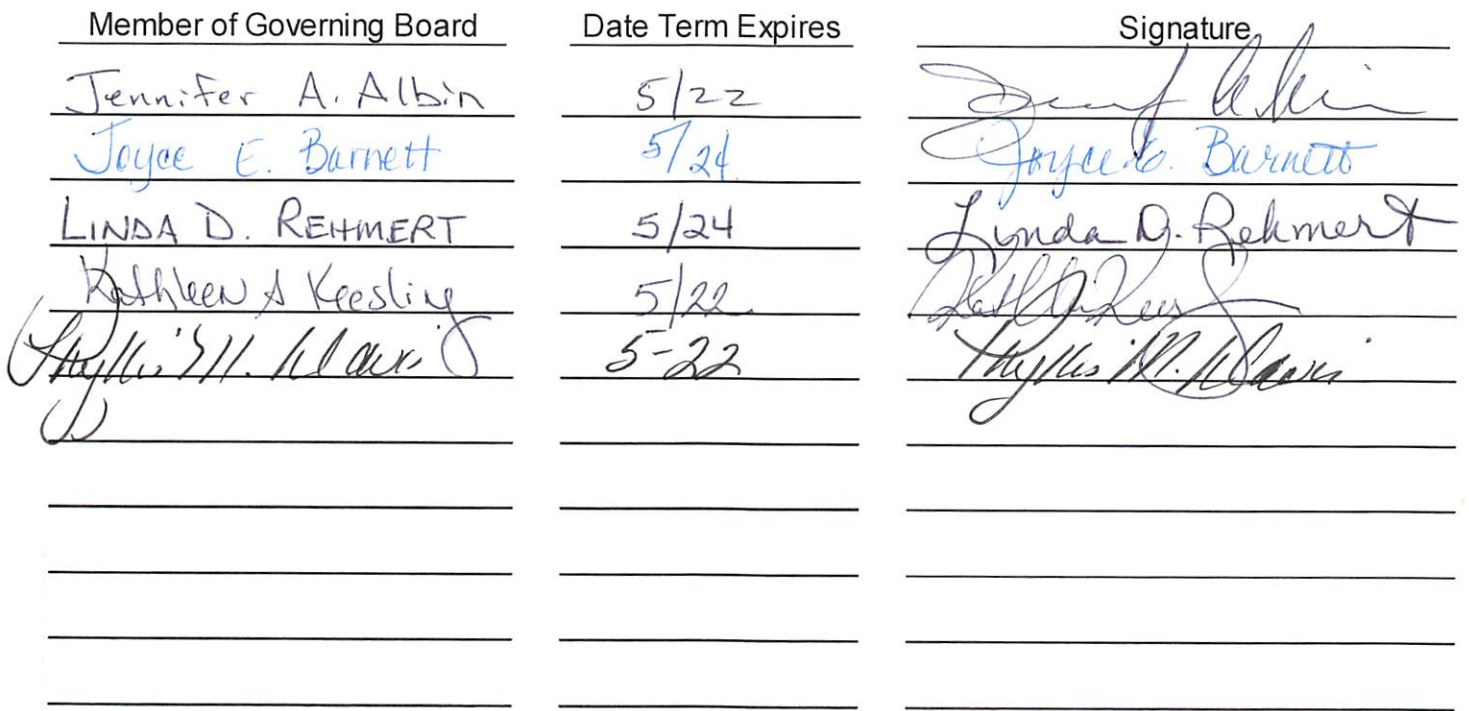 Member of Governing Board Date Term Expires Signature
Jennifer A. Albin 5/22
Joyce E. Barnett 5/24 Joyce E. Barnett
LINDA D. REHMERT 5/24 Linda D. Rehmert
Kathleen S Keesling 5/22
Phyllis M. Davis 5-22 Phyllis M. Davis